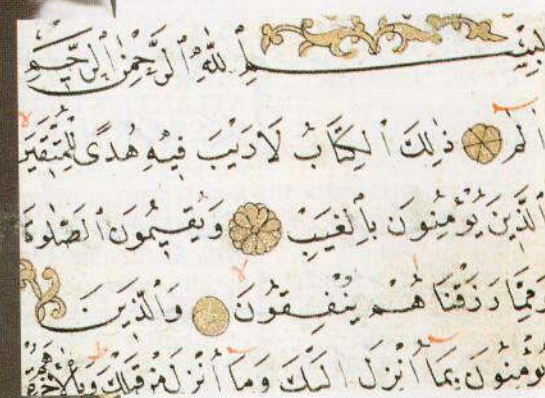 بِسْمِ اللَّهِ الرَّحْمَنِ الرَّحِيمِ
الم ذَلِكَ الْكِتَابُ لَا رَيْبَ فِيهِ هُدًى لِلْمُتَّقِينَ
الَّذِينَ يُؤْمِنُونَ بِالْغَيْبِ وَيُقِيمُونَ الصَّلَوةَ
وَمِمَّا رَزَقْنَا هُمْ يُنْفِقُونَ وَالَّذِينَ
يُؤْمِنُونَ بِمَا أُنْزِلَ إِلَيْكَ وَمَا أُنْزِلَ مِنْ قَبْلِكَ وَبِالْآخِرَةِ هُمْ